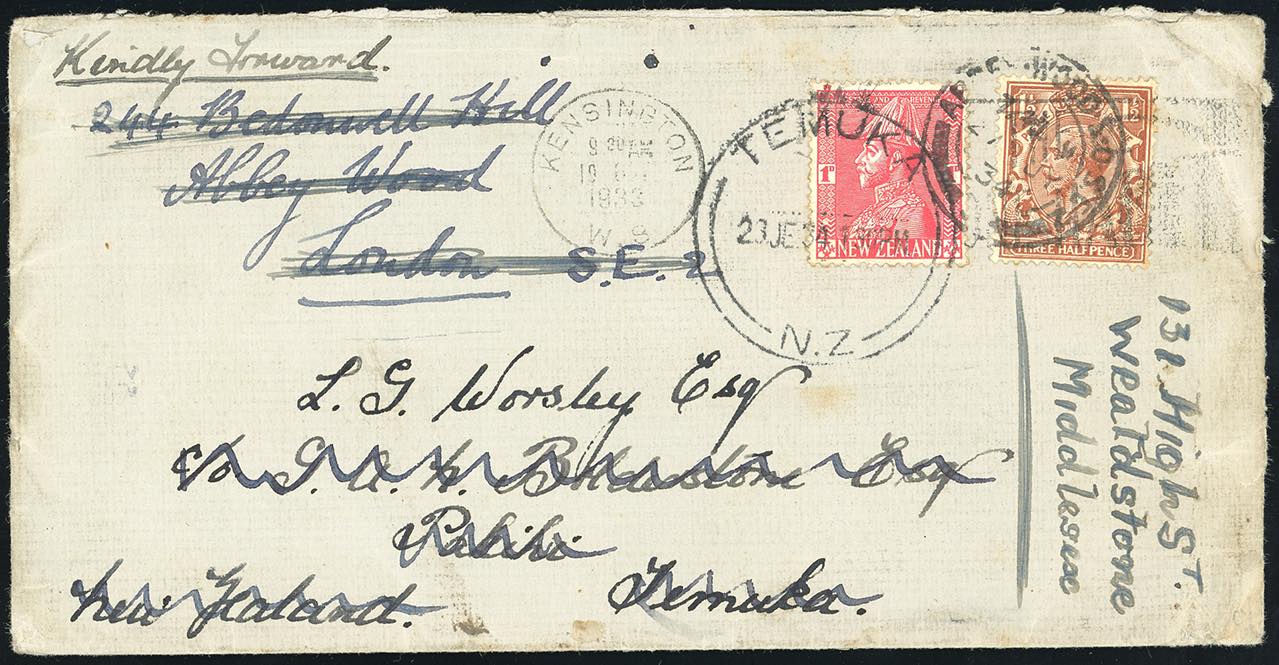 Kindly Forward.
244 Bedonwell Hill
Abbey Wood
London S.E. 2
KENSINGTON
9 30 AM
19
1933
W. 8
TEMUKA
23 JE 34
N.Z
1D 1D
NEW ZEALAND
1½ 1½
THREE HALFPENCE
L. G. Worsley Esq
c/o G. A. H. Esq
Temuka.
New Zealand.
131. High St.
Wealdstone
Middlesex